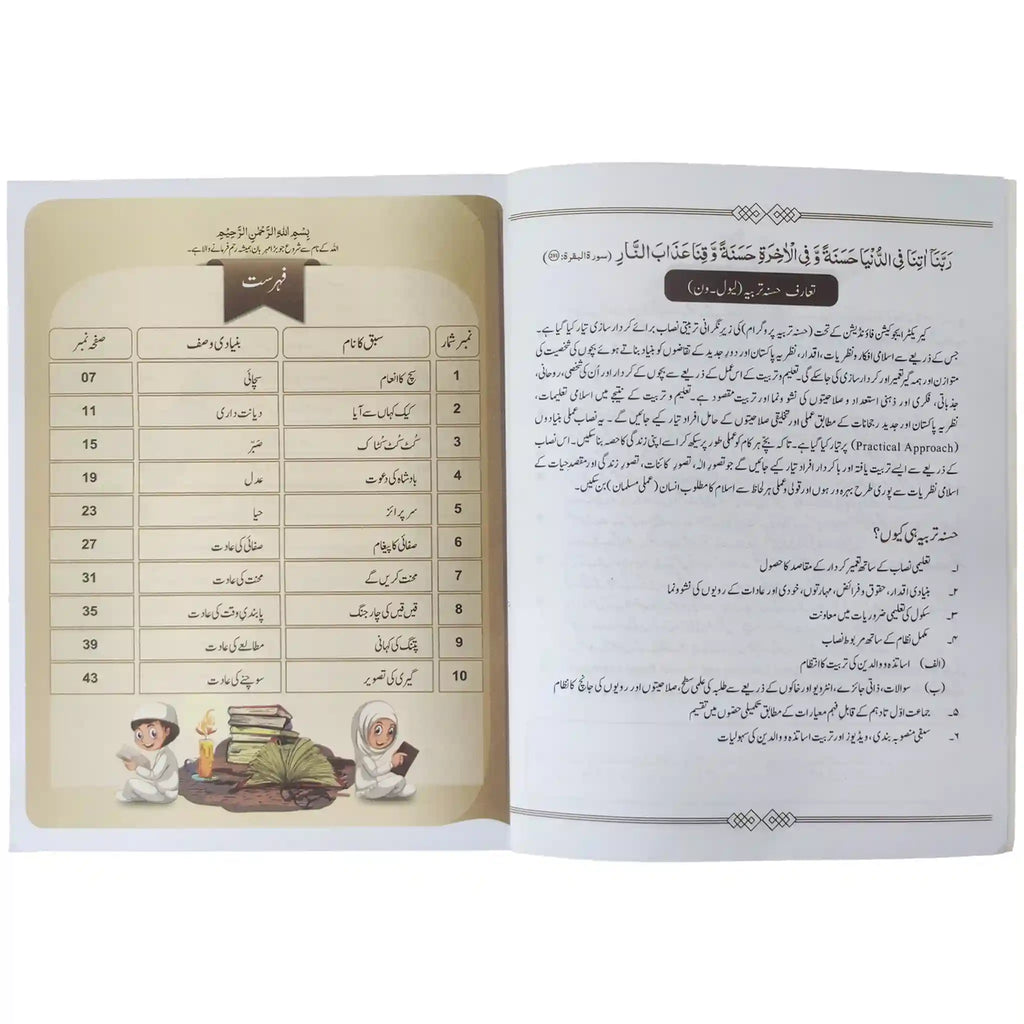 بِسْمِ اللهِ الرَّحْمٰنِ الرَّحِيْمِ
اللہ کے نام سے شروع جو بڑا مہربان ہمیشہ رحم فرمانے والا ہے۔
فہرست
نمبر شمار سبق کا نام بنیادی وصف صفحہ نمبر
1 سچ کا انعام سچائی 07
2 کیک کہاں سے آیا دیانت داری 11
3 کُٹ کُٹ کُٹاک صَبْر 15
4 بادشاہ کی دعوت عدل 19
5 سرپرائز حیا 23
6 صفائی کا پیغام صفائی کی عادت 27
7 محنت کریں گے محنت کی عادت 31
8 قیں قیں کی چار جنگ پابندیِ وقت کی عادت 35
9 پتنگ کی کہانی مطالعے کی عادت 39
10 گیری کی تصویر سوچنے کی عادت 43
رَبَّنَآ اٰتِنَا فِی الدُّنْيَا حَسَنَةً وَّ فِی الْاٰخِرَةِ حَسَنَةً وَّقِنَا عَذَابَ النَّارِ (سورۃ البقرۃ:
تعارف حسنہ تربیہ (لیول۔ون)
کیریکٹر ایجوکیشن فاؤنڈیشن کے تحت (حسنہ تربیہ پروگرام) کی زیرِ نگرانی تربیتی نصاب برائے کردار سازی تیار کیا گیا ہے۔
جس کے ذریعے سے اسلامی افکار و نظریات، اقدار، نظریہ پاکستان اور دورِ جدید کے تقاضوں کو بنیاد بناتے ہوئے بچوں کی شخصیت کی
متوازن اور ہمہ گیر تعمیر اور کردار سازی کی جا سکے گی۔ تعلیم و تربیت کے اس عمل کے ذریعے سے بچوں کے کردار اور اُن کی شخصی، روحانی،
جذباتی، فکری اور ذہنی استعداد و صلاحیتوں کی نشوونما اور تربیت مقصود ہے۔ تعلیم و تربیت کے نتیجے میں اسلامی تعلیمات،
نظریہ پاکستان اور جدید رجحانات کے مطابق عملی اور تخلیقی صلاحیتوں کے حامل افراد تیار کیے جائیں گے ۔ یہ نصاب عملی بنیادوں
(Practical Approach) پر تیار کیا گیا ہے۔ تاکہ بچے ہر کام کو عملی طور پر سیکھ کر اسے اپنی زندگی کا حصہ بنا سکیں۔ اس نصاب
کے ذریعے سے ایسے تربیت یافتہ اور باکردار افراد تیار کیے جائیں گے جو تصورِ الٰہ، تصورِ کائنات، تصورِ زندگی اور مقصدِ حیات کے
اسلامی نظریات سے پوری طرح بہرہ ور ہوں اور قولی و عملی ہر لحاظ سے اسلام کا مطلوب انسان (عملی مسلمان) بن سکیں۔
حسنہ تربیہ ہی کیوں؟
۱۔ تعلیمی نصاب کے ساتھ تعمیرِ کردار کے مقاصد کا حصول
۲۔ بنیادی اقدار، حقوق و فرائض، مہارتوں، خودی اور عادات کے رویوں کی نشوونما
۳۔ سکول کی تعلیمی ضروریات میں معاونت
۴۔ مکمل نظام کے ساتھ مربوط نصاب
(الف) اساتذہ و والدین کی تربیت کا انتظام
(ب) سوالات، ذاتی جائزے، انٹرویو اور خاکوں کے ذریعے سے طلبہ کی علمی سطح، صلاحیتوں اور رویوں کی جانچ کا نظام
۵۔ جماعت اوّل تا دہم کے قابلِ فہم معیارات کے مطابق تکمیلی حصّوں میں تقسیم
۶۔ سبقی منصوبہ بندی، ویڈیوز اور تربیت اساتذہ و والدین کی سہولیات